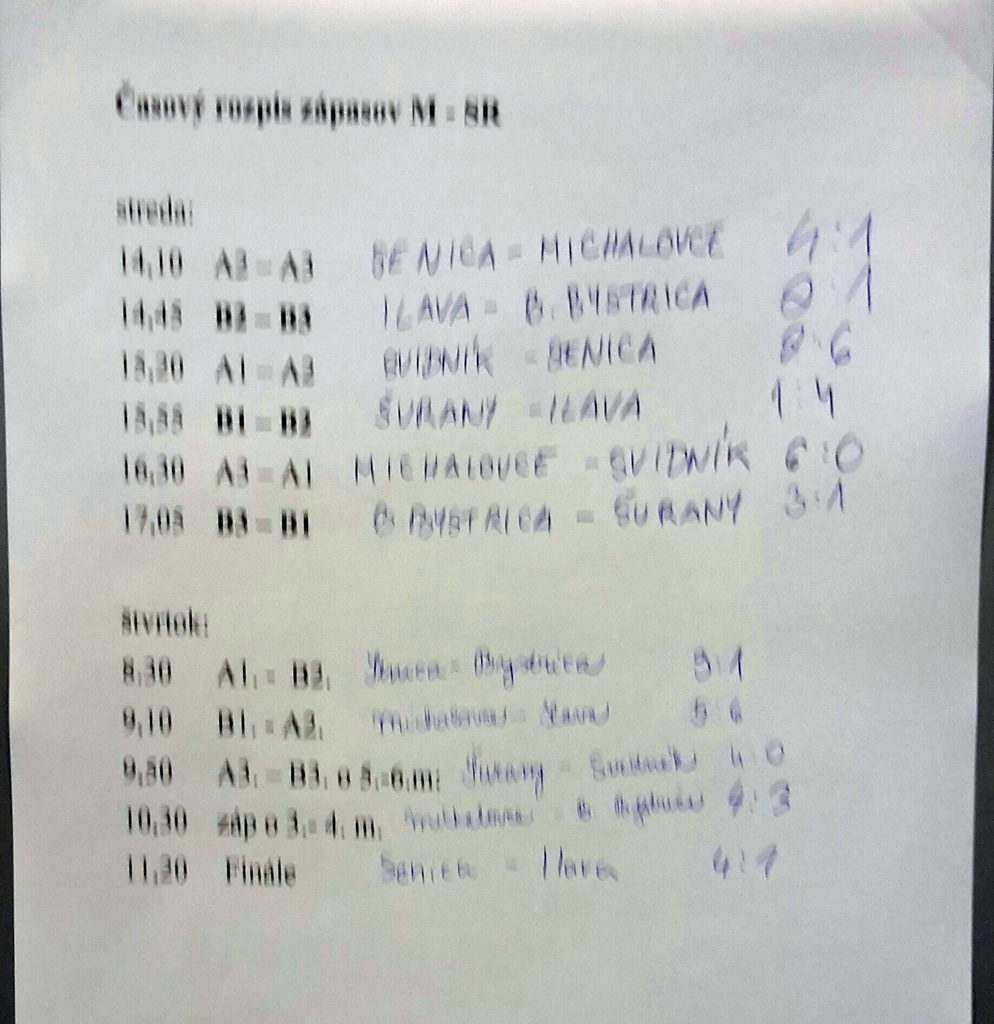 Časový rozpis zápasov M - SR
streda:
14,10 A2 - A3 SENICA - MICHALOVCE 4:1
14,45 B2 - B3 ILAVA - B. BYSTRICA :1
15,20 A1 - A2 SVIDNÍK - SENICA :6
15,55 B1 - B2 ŠURANY - ILAVA 1:4
16,30 A3 - A1 MICHALOVCE - SVIDNÍK 6:0
17,05 B3 - B1 B. BYSTRICA - ŠURANY 3:1
štvrtok:
8,30 A1. - B2. Senica - Bystrica :1
9,10 B1. - A2. Michalovce - Ilava 5:6
9,50 A3. - B3. o 5.-6.m. Šurany - Svidník 4:0
10,30 záp o 3.- 4. m. Michalovce - B. Bystrica :3
11,20 Finále Senica - Ilava 4:1